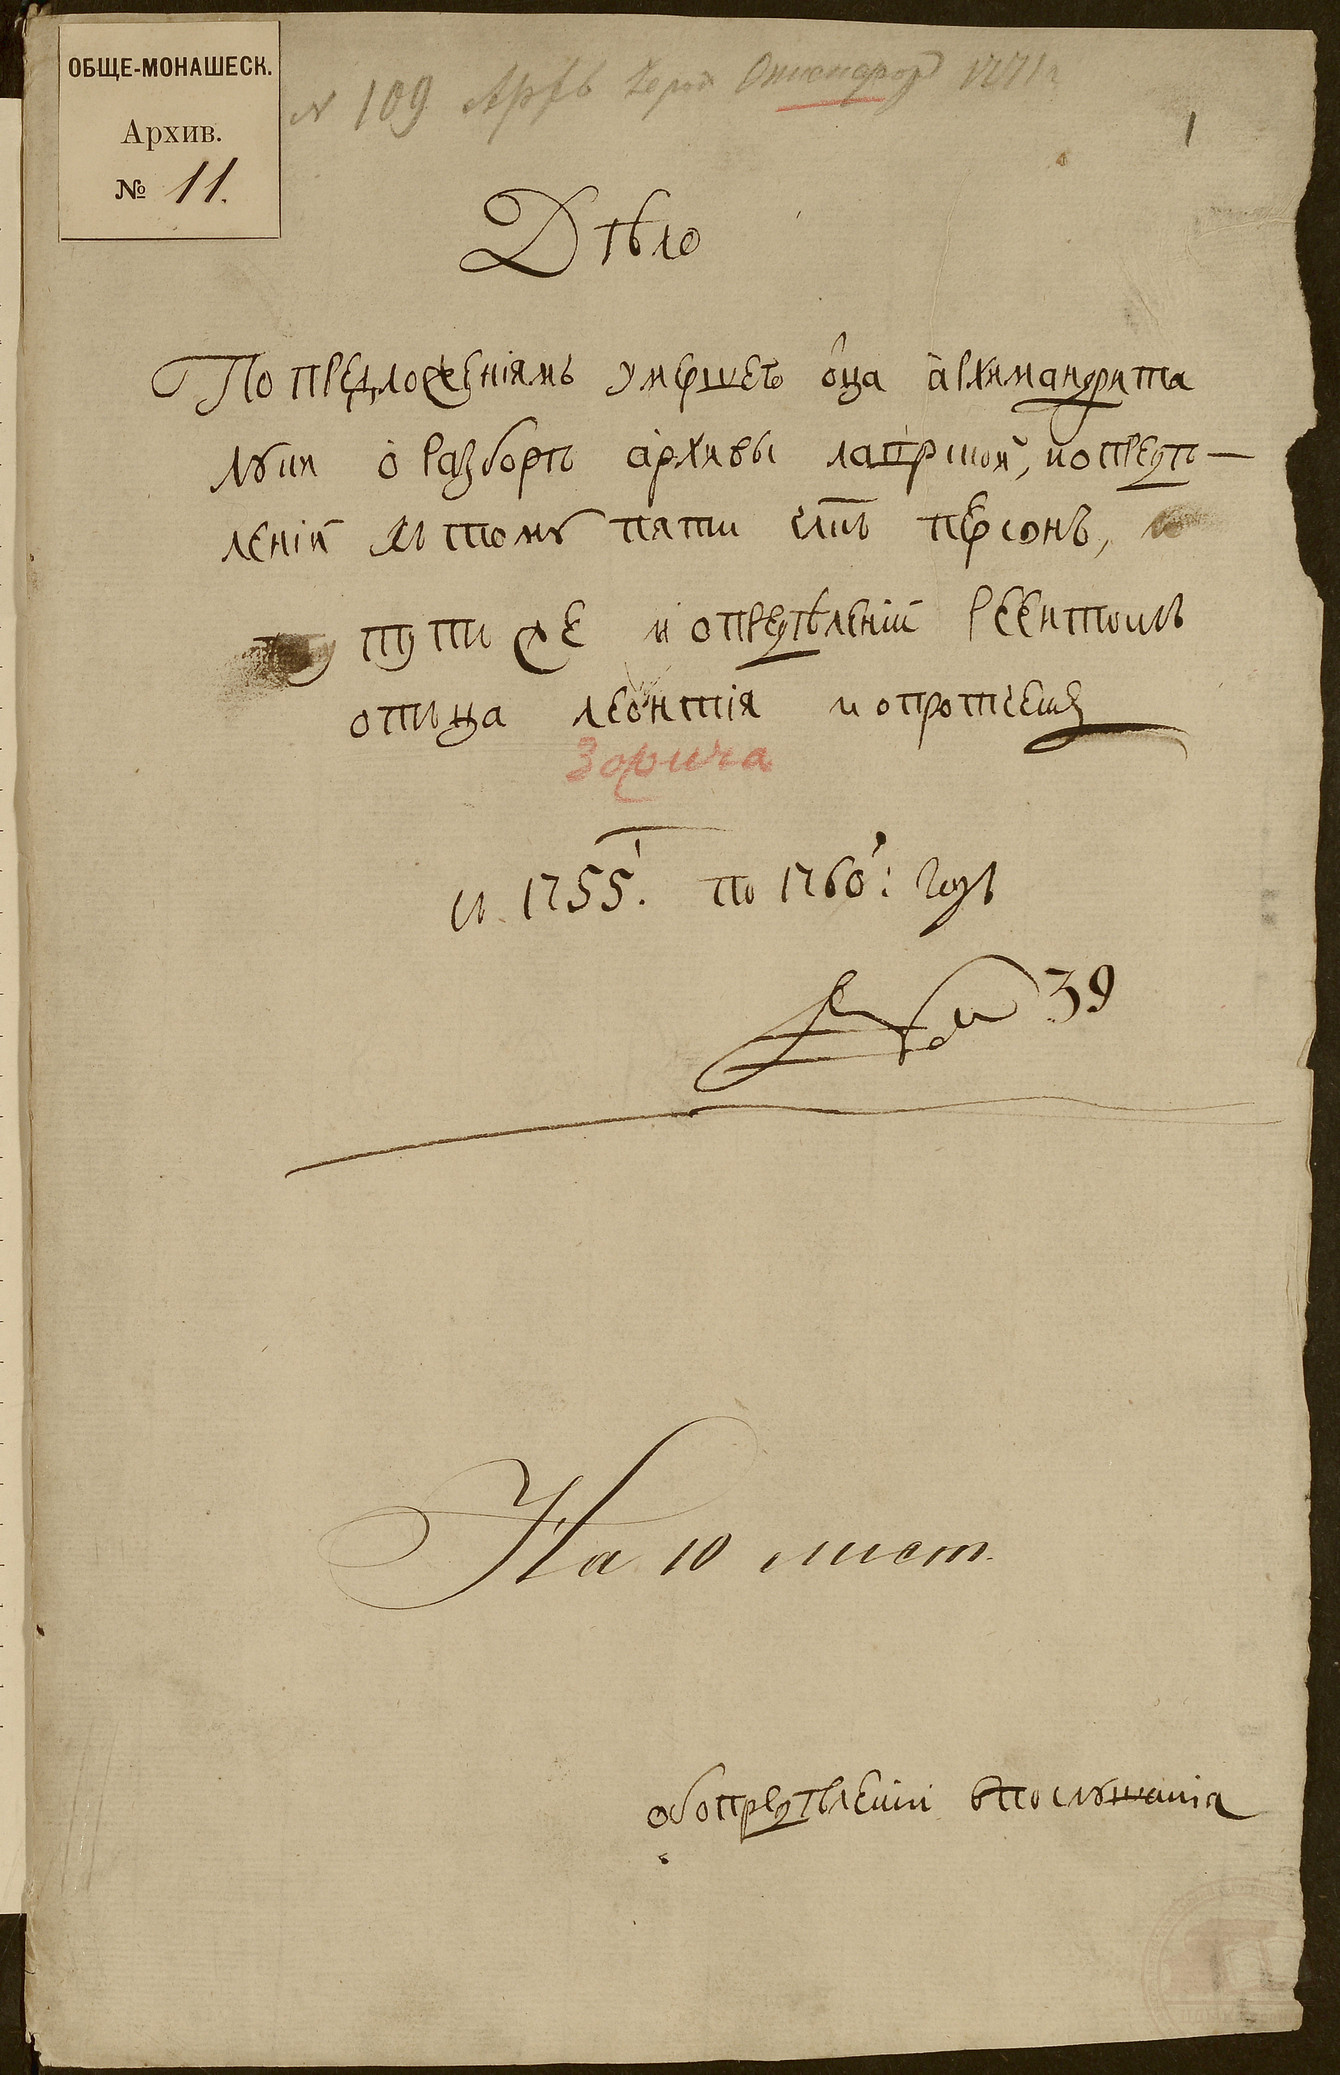 ОБЩЕ-МОНАШЕСК.
Архив.
№ 11.
№ 109
1
Дѣло
По предложениямъ умершего оца архимандрита
Луки о разборѣ архивы лаврской, и опредѣ-
лений къ тому пяти персонъ,
тутъ же и опредѣлений
отъца леонтія и о протчемъ
Зорича
1755. по 1760: годъ
№ 39
На 10 лист.
об опредѣлении в послушания